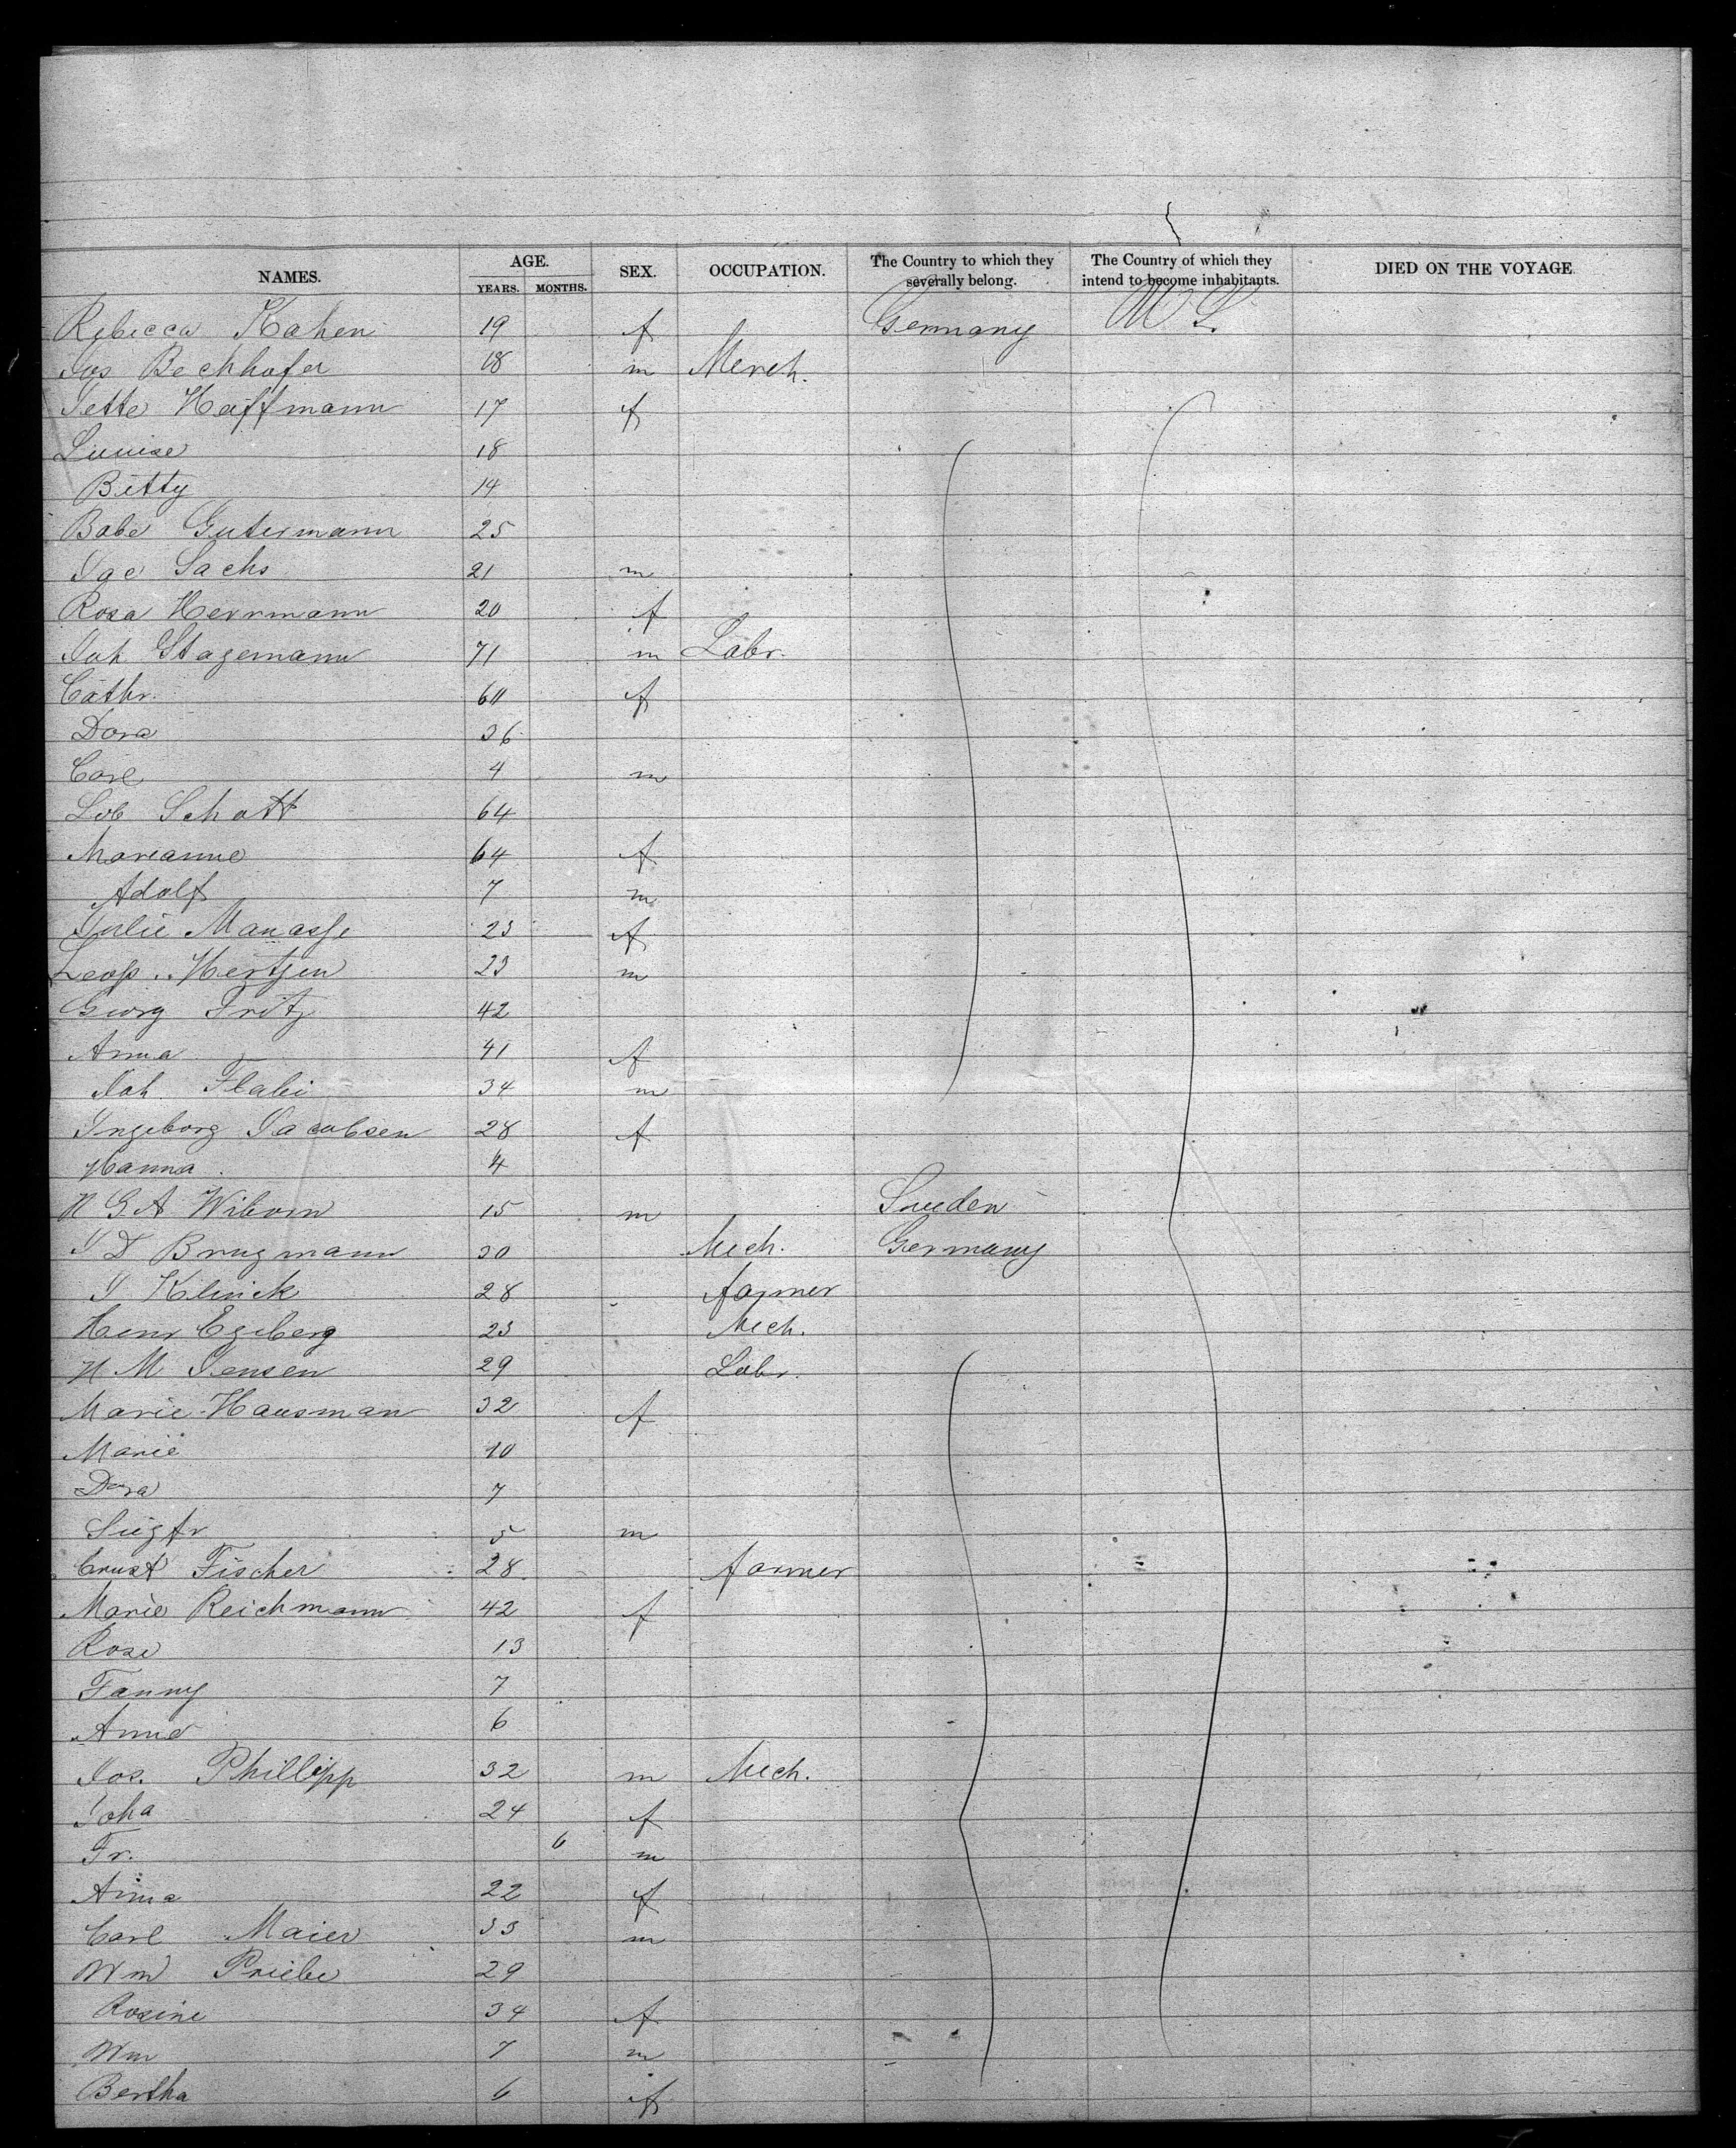 NAMES. AGE. YEARS. MONTHS. SEX. OCCUPATION. The Country to which they severally belong. The Country of which they intend to become inhabitants. DIED ON THE VOYAGE
Rebecca Kahen 19 f Germany
Jos Bechhofer 18 m Merch.
Jette Haffmann 17 f
Louise 18
Betty 14
Babe Gutermann 25
Jac Sachs 21 m
Rosa Herrmann 20 f
Joh Stagemann 71 m Labr.
Cathr. 60 f
Dora 36
Carl 4 m
Lob Schott 64
Marianne 64 f
Adolf 7 m
Julie Manasse 23 f
Leop. Hertzen 23 m
Georg Fritz 42
Anna 41 f
Joh. Flabi 34 m
Ingeborg Jacobsen 28 f
Hanna 4
H G A Wiborn 15 m Sweden
J D Brugmann 30 Mech. Germany
J Klinck 28 farmer
Henr Egeberg 23 Mech.
H M Jensen 29 Labr.
Marie Hausman 32 f
Marie 10
Dora 7
Siegfr 5 m
Ernst Fischer 28 farmer
Marie Reichmann 42 f
Rosa 13
Fanny 7
Anna 6
Jos. Phillipp 32 m Mech.
Joha 24 f
Fr. 6 m
Anna 22 f
Carl Maier 33 m
Wm Priebe 29
Rosine 34 f
Wm 7 m
Bertha 6 f